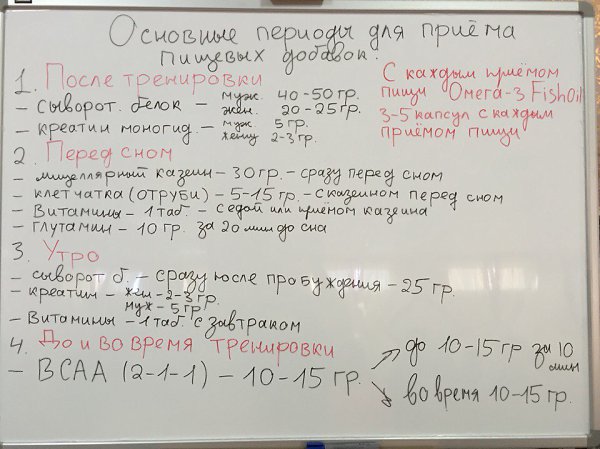 Основные периоды для приёма
пищевых добавок.
1. После тренировки
– сыворот. белок – муж. 40–50 гр.
жен. 20–25 гр.
– креатин моногид. – муж 5 гр.
женщ 2–3 гр.
С каждым приёмом
пищи Омега-3 FishOil
3–5 капсул с каждым
приёмом пищи
2. Перед сном
– мицеллярный казеин – 30 гр. – сразу перед сном
– клетчатка (отруби) – 5–15 гр. – с казеином перед сном
– Витамины – 1 таб. – с едой или приёмом казеина
– глутамин – 10 гр. за 20 мин до сна
3. Утро
– сыворот б. – сразу после пробуждения – 25 гр.
– креатин – жен – 2–3 гр.
муж – 5 гр
– Витамины – 1 таб. с завтраком
4. До и во время тренировки
– BCAA (2–1–1) – 10–15 гр.
до 10–15 гр за 10
мин
во время 10–15 гр.